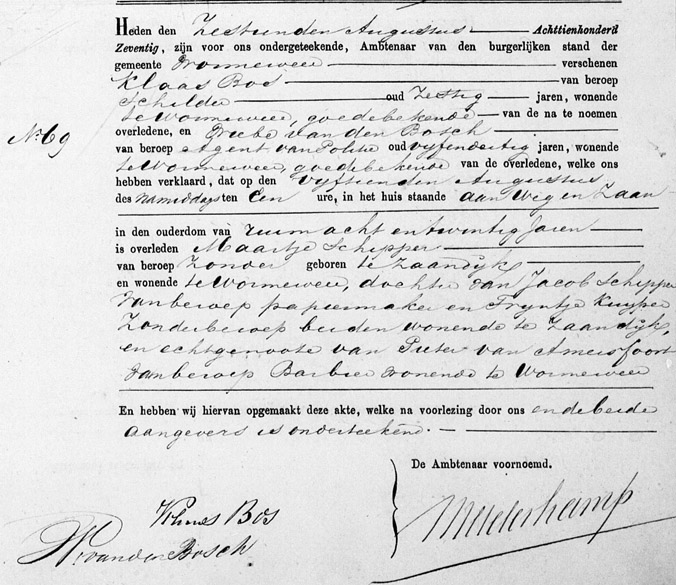 Heden den Zestienden Augustus Achttienhonderd
Zeventig, zijn voor ons ondergeteekende, Ambtenaar van den burgerlijken stand der
gemeente Wormerveer verschenen
Klaas Bos van beroep
Schilder oud Zestig jaren, wonende
te Wormerveer, goedebekende van de na te noemen
No. 69
overledene, en van den Bosch
van beroep Agent van Politie oud vyfendertig jaren, wonende
te Wormerveer, goedebekende van de overledene, welke ons
hebben verklaard, dat op den vyftienden Augustus
des namiddags ten Een ure, in het huis staande aan Weg en Zaan
in den ouderdom van ruim acht en twintig Jaren
is overleden Maartje Schipper
van beroep Zonder geboren te Zaandyk
en wonende te Wormerveer, dochter van Jacob Schipper
van beroep papiermaker en Tryntje Kuyper
Zonder beroep beiden wonende te Zaandyk,
en echtgenoote van Pieter van Amersfoort
van beroep Barbier wonende te Wormerveer
En hebben wij hiervan opgemaakt deze akte, welke na voorlezing door ons en de beide
aangevers is onderteekend.
De Ambtenaar voornoemd.
Klaas Bos
van den Bosch